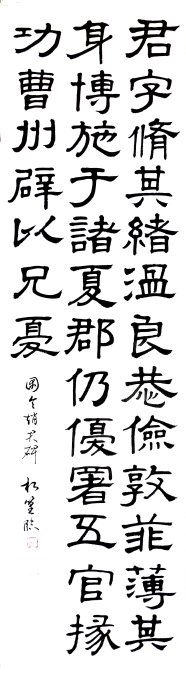 君字脩其緒溫良恭儉敦菲薄其
身博施于諸夏郡仍優署五官掾
功曹州辟以兄憂
圉令趙君碑 臨